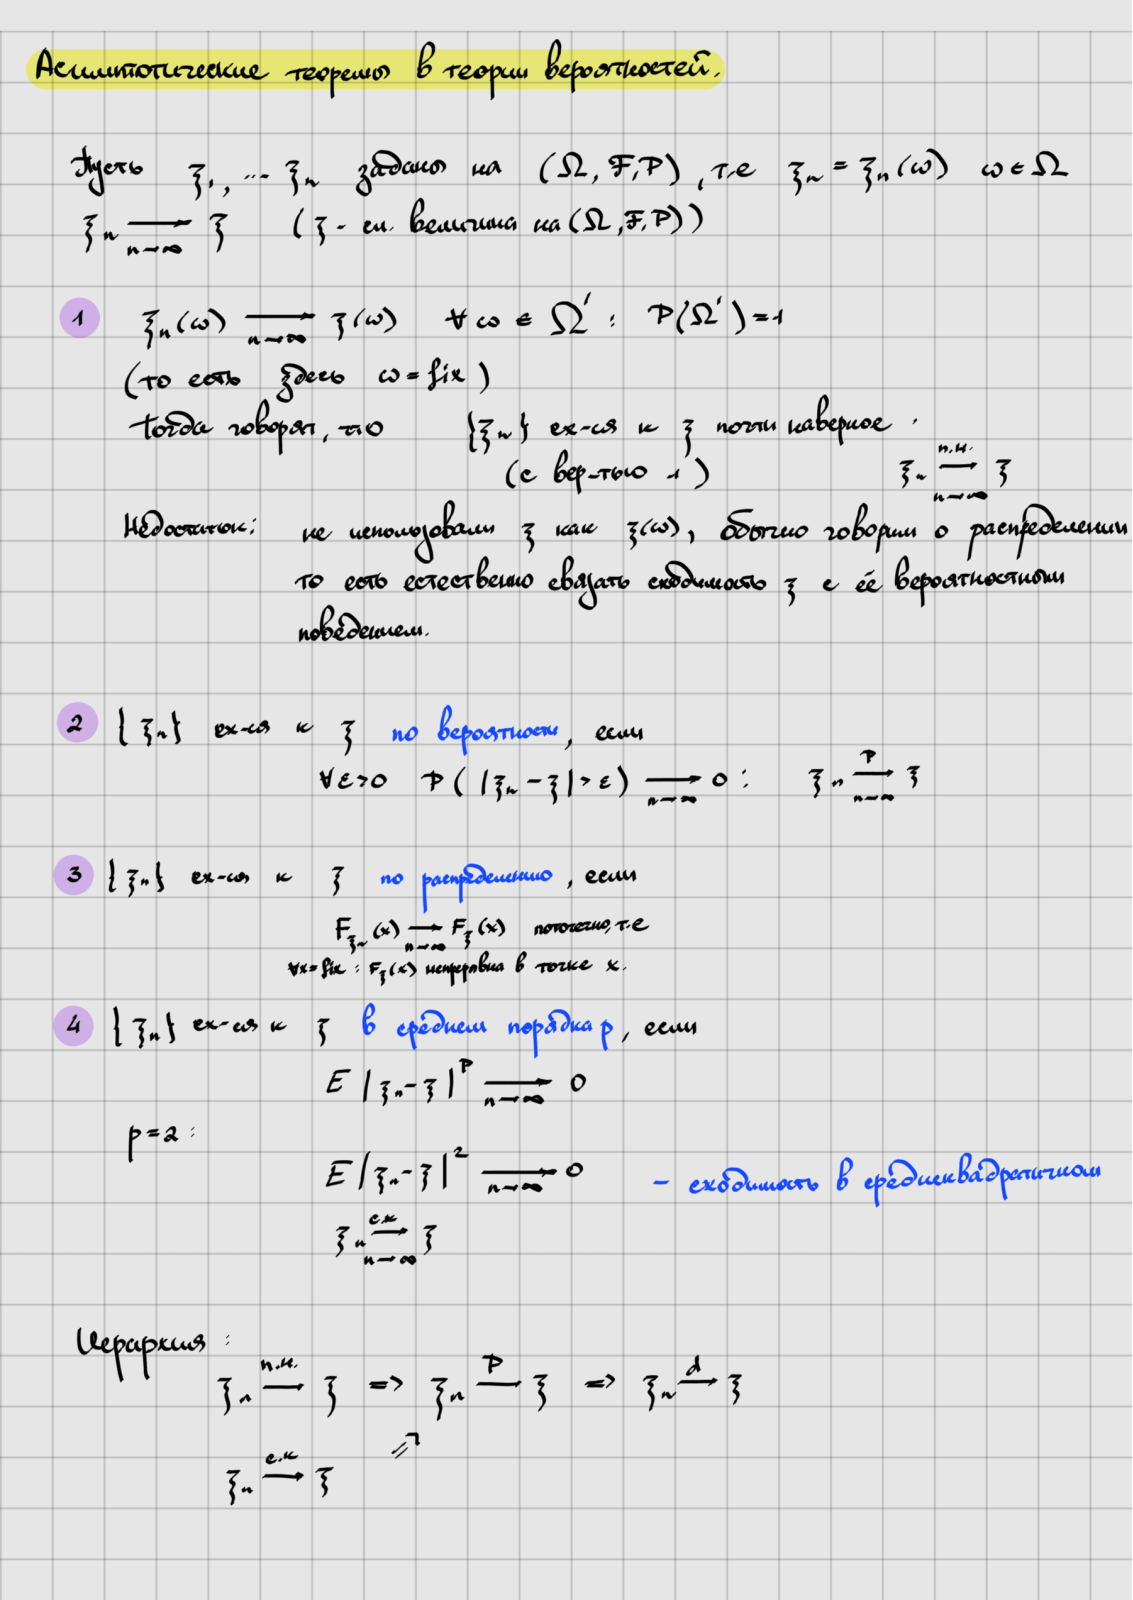 Асимптотические теоремы в теории вероятностей.
Пусть ξ₁, ... ξₙ заданы на (Ω, F, P), т.е ξₙ = ξₙ(ω) ω ∈ Ω
ξₙ ⟶ ξ (ξ - сл. величина на (Ω, F, P))
n→∞
1 ξₙ(ω) ⟶ ξ(ω) ∀ ω ∈ Ω′ : P(Ω′) = 1
n→∞
(то есть здесь ω = fix)
Тогда говорят, что {ξₙ} сх-ся к ξ почти наверное
(с вер-тью 1) ξₙ ⟶ ξ
п.н.
n→∞
Недостаток: не использовали ξ как ξ(ω), обычно говорим о распределении
то есть естественно связать сходимость ξ с её вероятностным
поведением.
2 {ξₙ} сх-ся к ξ по вероятности, если
∀ε>0 P(|ξₙ - ξ| > ε) ⟶ 0 : ξₙ ⟶ ξ
n→∞ P n→∞
3 {ξₙ} сх-ся к ξ по распределению, если
F_ξₙ(x) ⟶ F_ξ(x) поточечно, т.е
n→∞
∀x = fix : F_ξ(x) непрерывна в точке x.
4 {ξₙ} сх-ся к ξ в среднем порядка p, если
E |ξₙ - ξ|ᵖ ⟶ 0
n→∞
p = 2 :
E |ξₙ - ξ|² ⟶ 0 - сходимость в среднеквадратичном
n→∞
ξₙ ⟶ ξ
с.к
n→∞
Иерархия :
ξₙ ⟶ ξ ⇒ ξₙ ⟶ ξ ⇒ ξₙ ⟶ ξ
п.н. P d
ξₙ ⟶ ξ ⇗
с.к